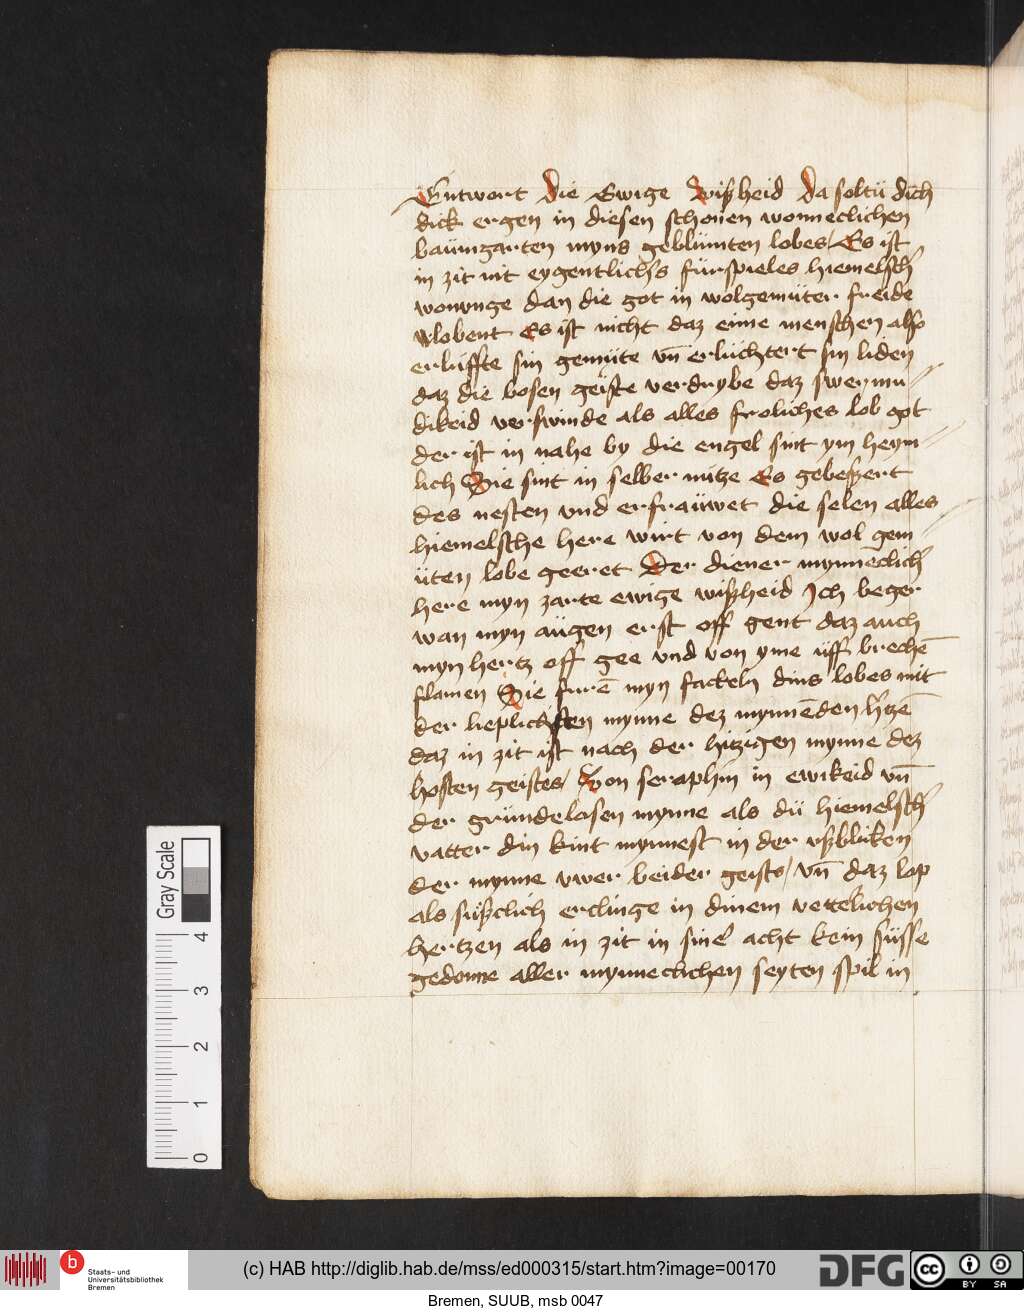 Entwort die Ewige Wißheid da soltü dich
dick ergen in diesen schonen wonneclichen
baümgarten myns geblümten lobes / Es ist
in zit nit eygentlichs fürspieles hiemelsch
wonunge dan die got in wolgemüter freide
vlobent Es ist nicht daz eime menschen also
erlüffte sin gemüte vn̄ erlüchtert sin liden
daz die bosen geiste verdrybe daz swermu⸗
dikeid verswinde als alles froliches lob got
der ist in nahe by die engel sint ym heym⸗
lich Sie sint in selber nütze Es gebeßert
des nesten vnd erfraüwet die selen alles
hiemelsche here wirt von dem wol gem⸗
üten lobe geeret Der diener mynneclich
here myn zarte ewige wißheid Ich beger
wan myn augen erst off gent daz auch
myn hertz off gee vnd von yme üff brechē
flamen Die furē myn fackeln dins lobes mit
der lieplichsten mynne dez mynnēden h'tzē
daz in zit ist nach der hitzigen mynne dez
hosten geistes / Von seraphin in ewikeid vn̄
der gründelosen mynne als dü hiemelsch
vatter din kint mynnest in der vßblicken
der mynne vwer beider geists / vn̄ daz lop
als süßclich erclinge in dinem vettelichen
hertzen als in zit in sine' acht kein süsse
gedonne aller mynneclichen seyten spil in
Gray Scale
4
3
2
1
0
b
Staats- und
Universitätsbibliothek
Bremen
(c) HAB http://diglib.hab.de/mss/ed000315/start.htm?image=00170
DFG
cc
BY SA
Bremen, SUUB, msb 0047